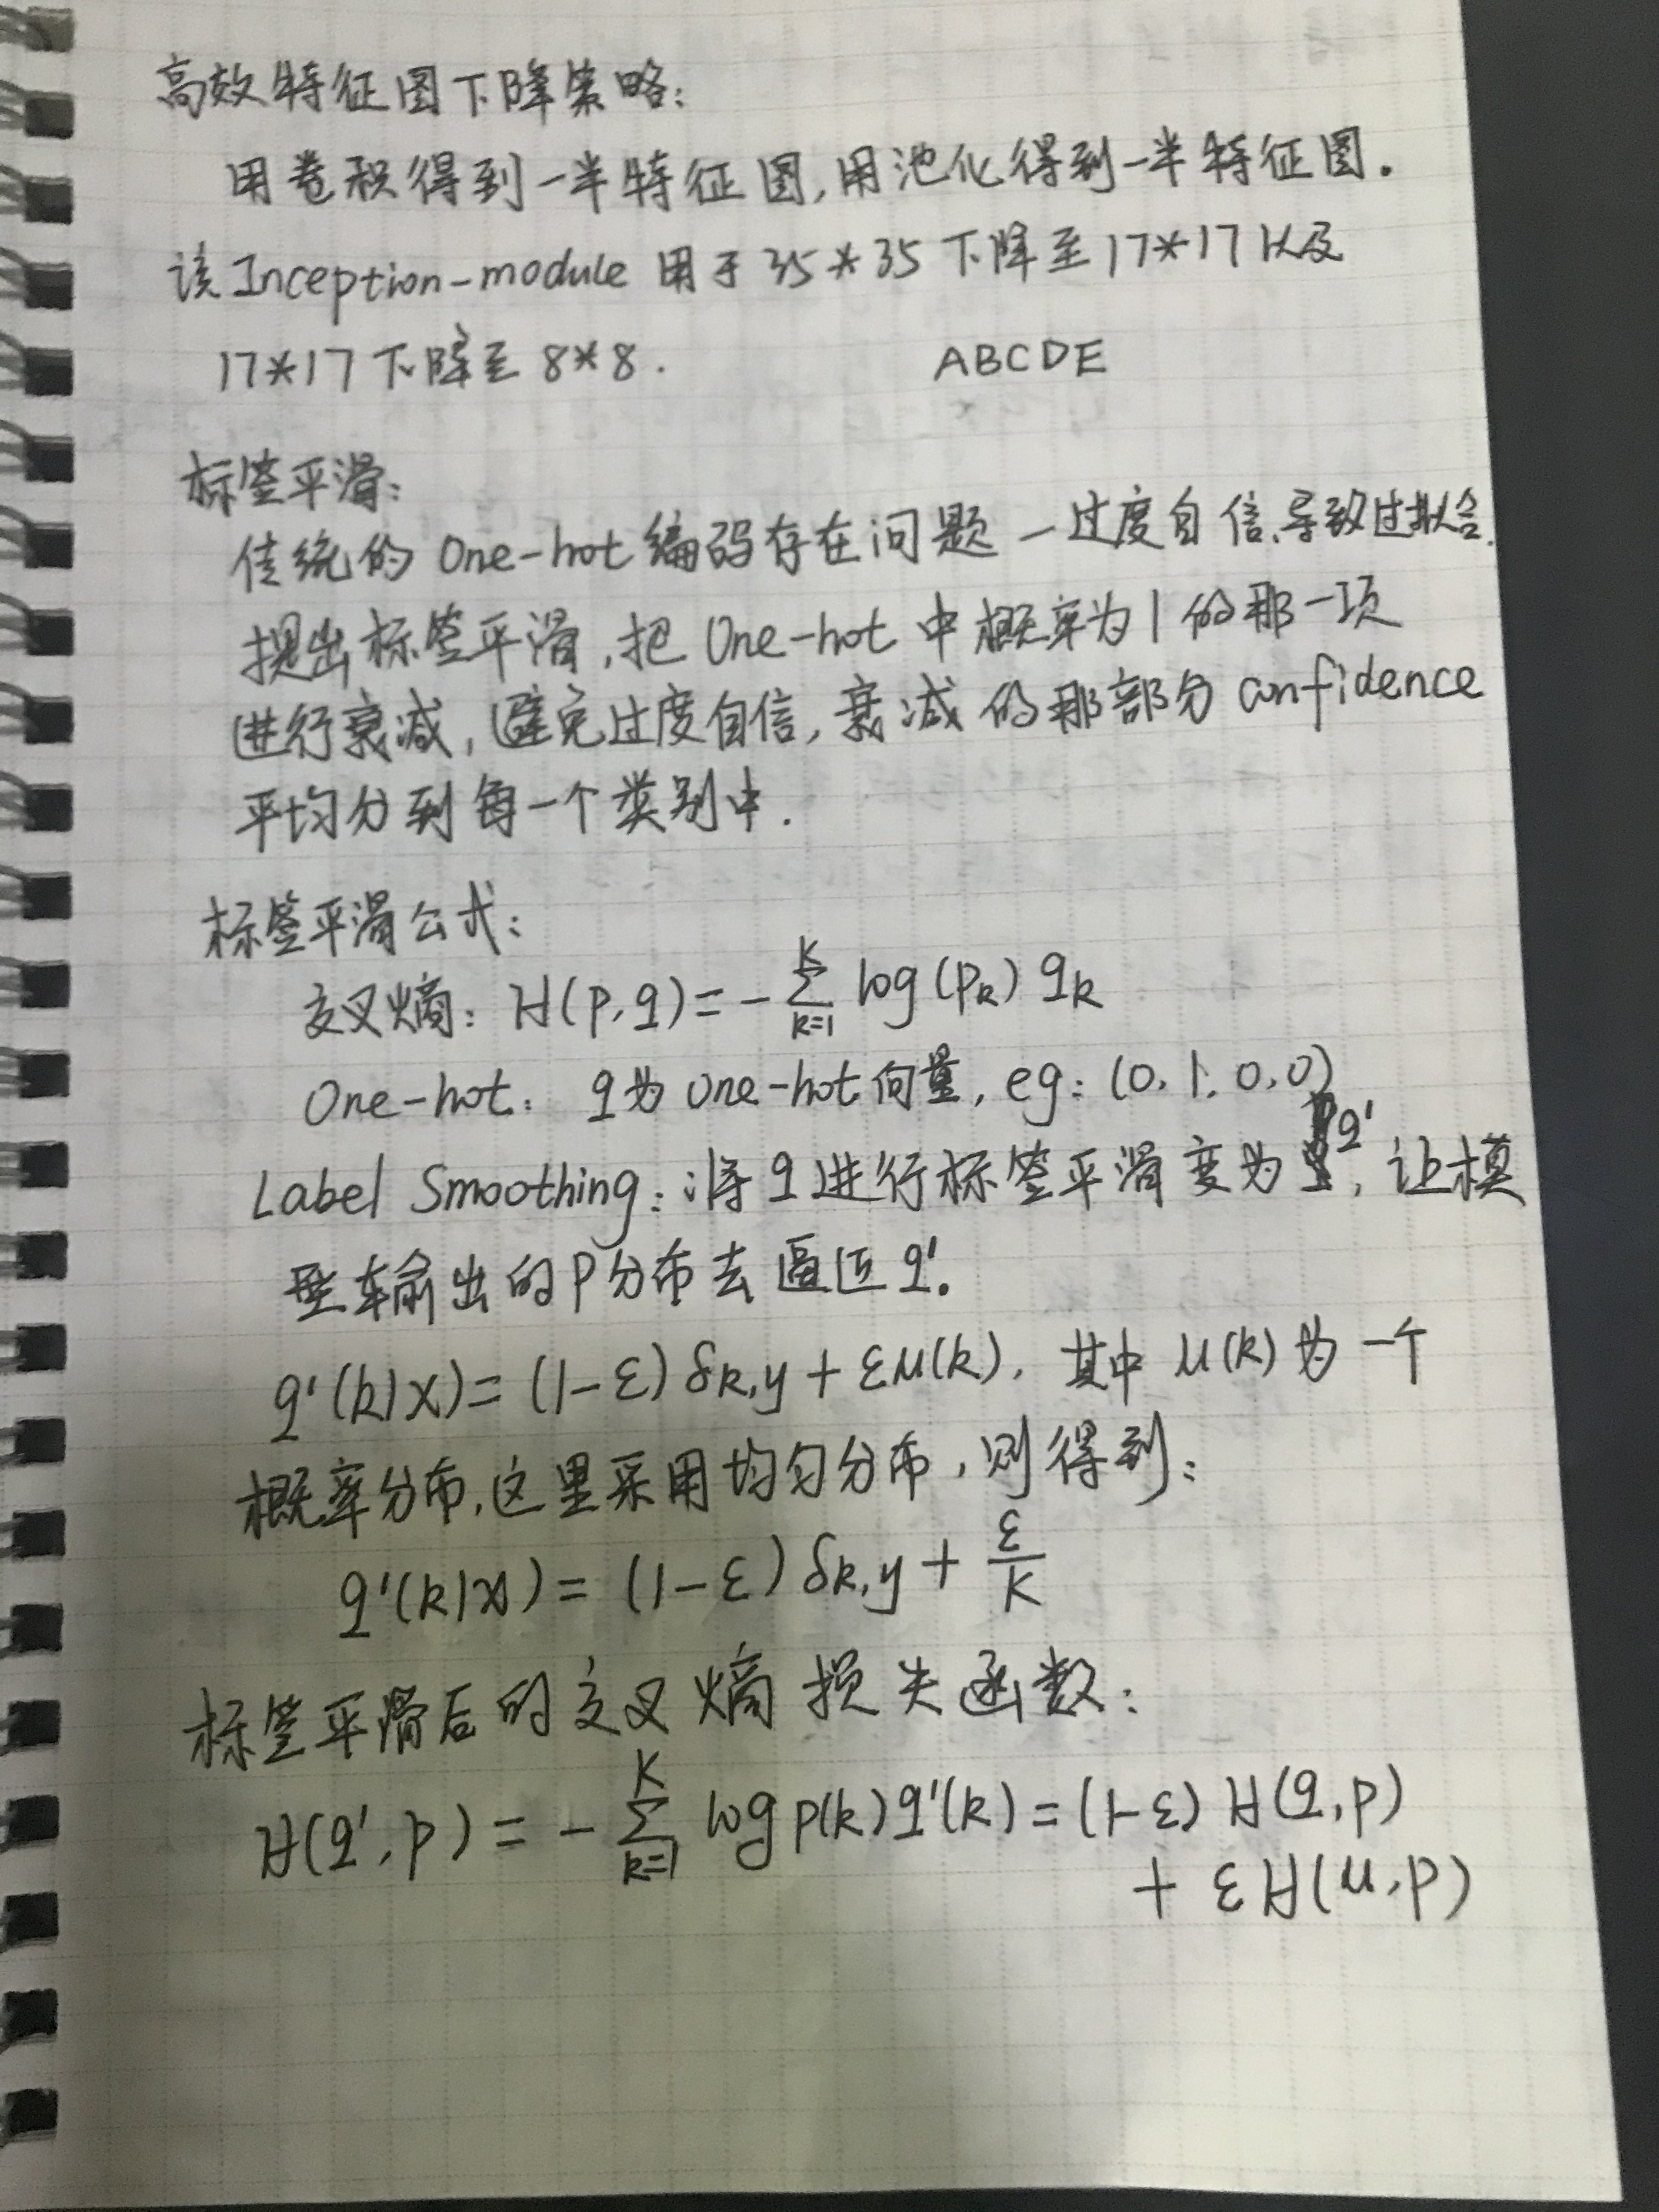 高效特征图下降策略:
用卷积得到一半特征图,用池化得到一半特征图.
该Inception-module 用于 35*35 下降至 17*17 以及
17*17 下降至 8*8. ABCDE
标签平滑:
传统的 One-hot 编码存在问题 — 过度自信,导致过拟合.
提出标签平滑,把 One-hot 中概率为1的那一项
进行衰减,避免过度自信,衰减的那部分 confidence
平均分到每一个类别中.
标签平滑公式:
交叉熵: H(p,q)=-∑_{k=1}^{K} log(p_k) q_k
One-hot: q为one-hot向量, eg: (0,1,0,0)
Label Smoothing: 将q进行标签平滑变为 q', 让模
型输出的P分布去逼近q'.
q'(k|x)=(1-ε)δ_{k,y}+εu(k), 其中 u(k)为一个
概率分布,这里采用均匀分布,则得到:
q'(k|x)=(1-ε)δ_{k,y}+ε/K
标签平滑后的交叉熵损失函数:
H(q',p)=-∑_{k=1}^{K} log p(k)q'(k)=(1-ε)H(q,p)
+εH(u,p)